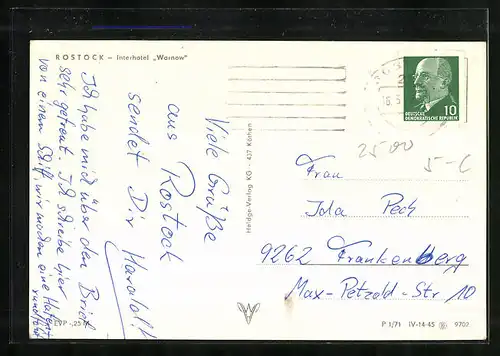 ROSTOCK – Interhotel „Warnow"
Viele Grüße
aus Rostock
sendet Dir Harald!
Ich habe mich über den Brief
sehr gefreut. Ich schreibe hier
von einem Schiff wir machen eine Hafen-
rundfahrt
EVP -,25 M
Heldge-Verlag KG · 437 Köthen
10
DEUTSCHE
DEMOKRATISCHE REPUBLIK
2500
5-C
Frau
Ida Pech
9262 Frankenberg
Max-Petzold-Str 10
P 1/71 IV-14-45 9702